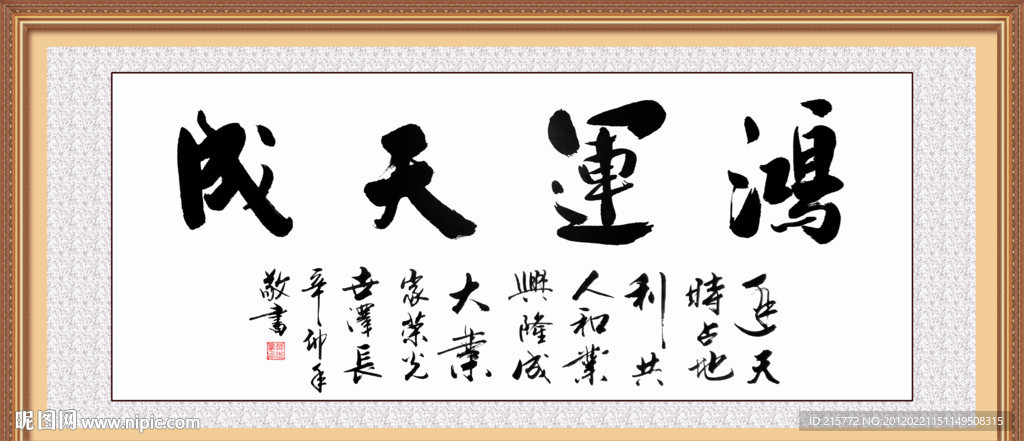 鴻運天成
逢天
時占地
利共
人和業
興隆成
大業
家榮光
世澤長
辛卯年
敬書
昵图网 www.nipic.com
ID:215772 NO:20120221151149508315